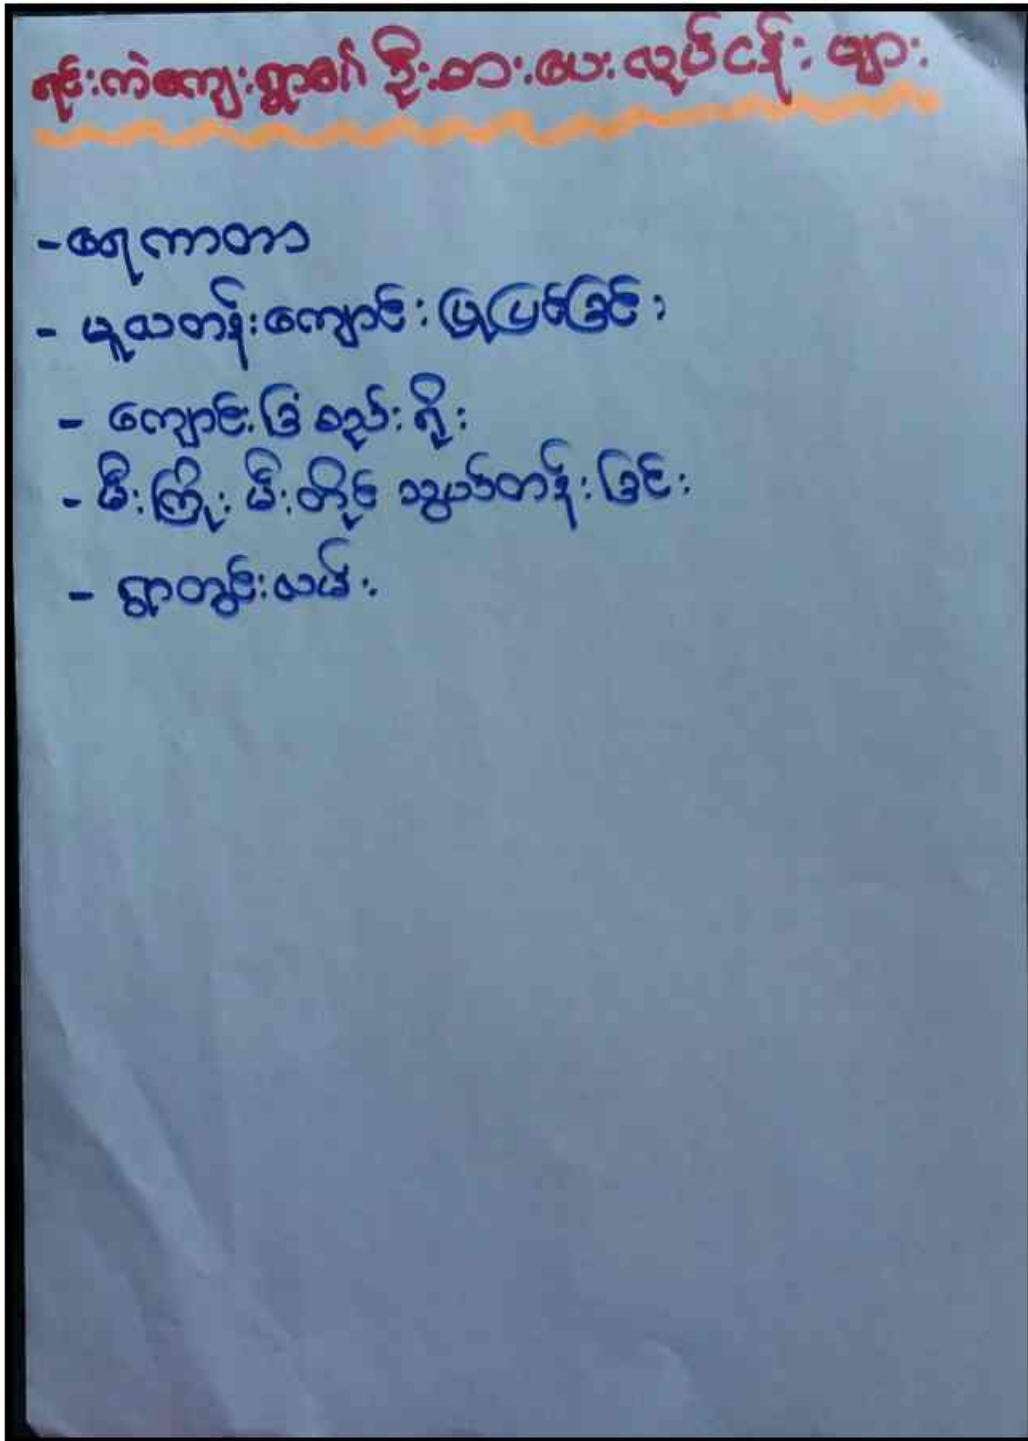 ရင်းကဲကျေးရွာ၏ ဦးစားပေးလုပ်ငန်းများ
- ရေကာတာ
- မူလတန်းကျောင်းပြုပြင်ခြင်း
- ကျောင်းခြံစည်းရိုး
- မီးကြိုးမီးတိုင် သွယ်တန်းခြင်း
- ရွာတွင်းလမ်း